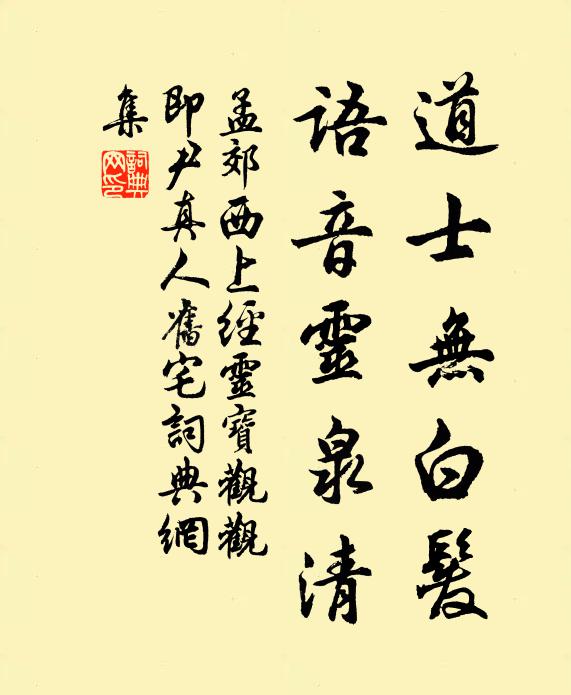 道士無白髮
語音靈泉清
孟郊西上經靈寶觀觀
即尹真人舊宅詞典網
集
詞典网印